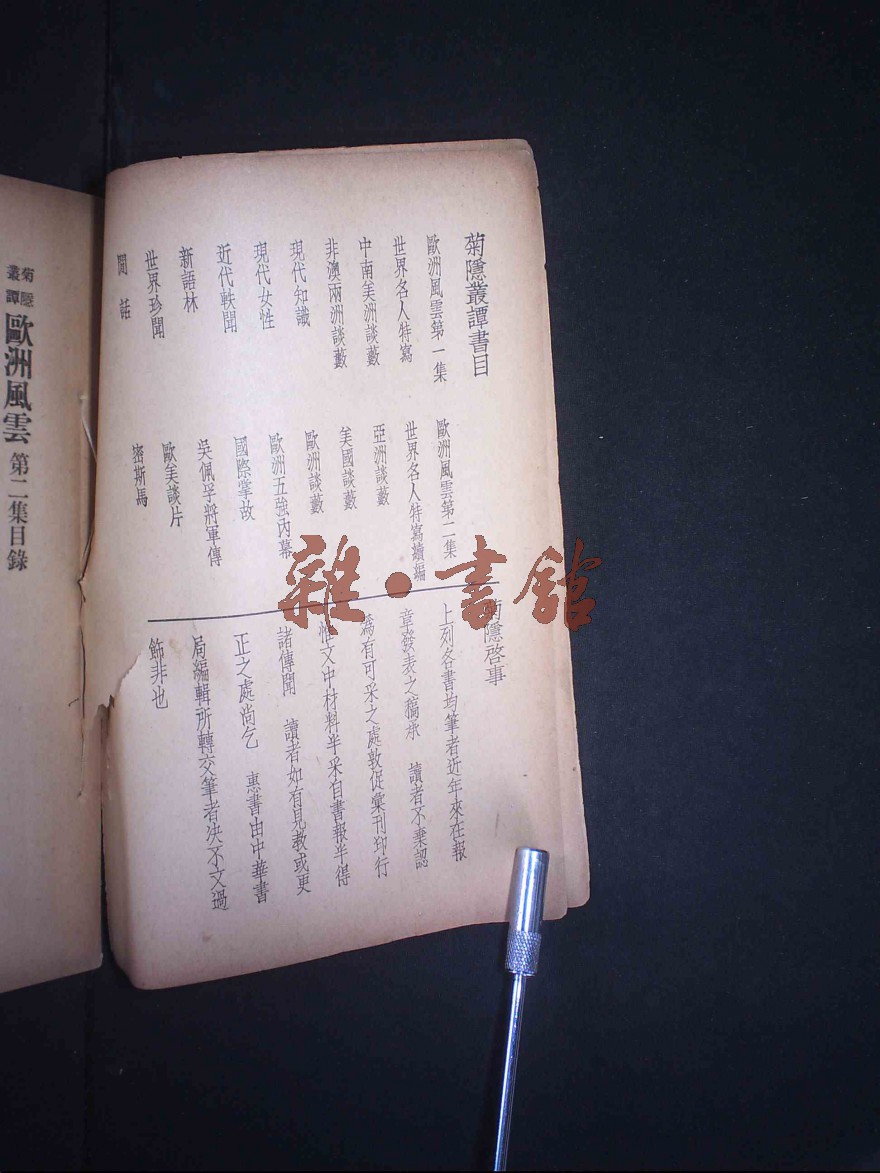 菊隱叢譚書目
歐洲風雲第一集
歐洲風雲第二集
世界名人特寫
世界名人特寫續編
中南美洲談藪
亞洲談藪
非澳兩洲談藪
美國談藪
現代知識
歐洲談藪
現代女性
歐洲五強內幕
近代軼聞
國際掌故
新語林
吳佩孚將軍傳
世界珍聞
歐美談片
閒話
密斯馬
菊隱啓事
上列各書均筆者近年來在報
章發表之稿承 讀者不棄認
爲有可采之處敦促彙刊印行
惟文中材料半采自書報半得
諸傳聞 讀者如有見教或更
正之處尚乞 惠書由中華書
局編輯所轉交筆者決不文過
飾非也
菊隱叢譚 歐洲風雲 第二集目錄
雜·書館